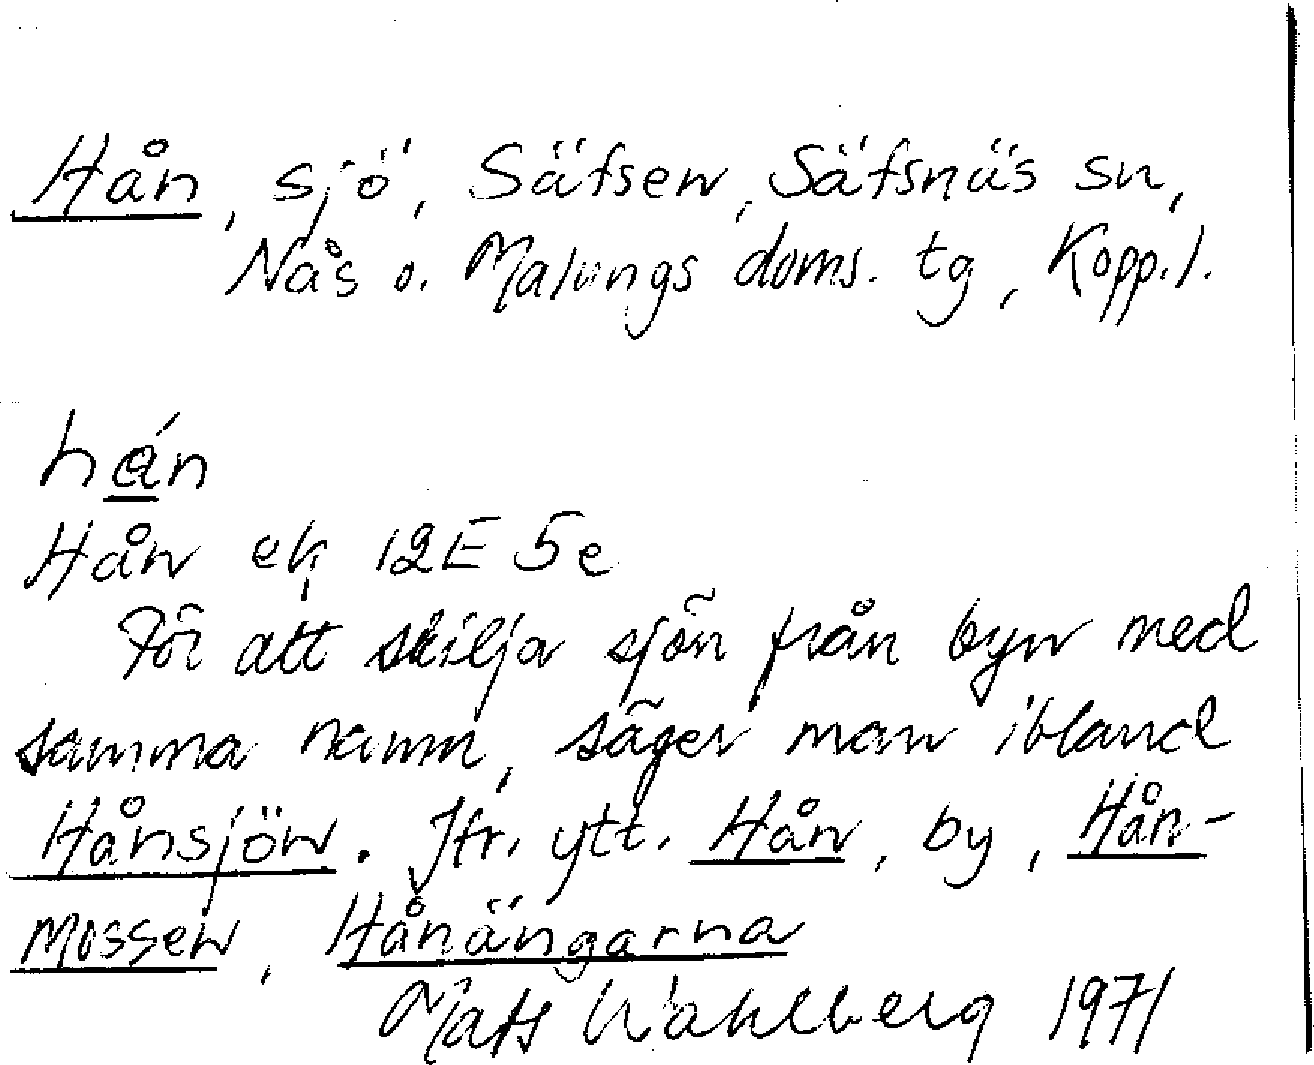 Hån, sjö, Säfsen, Säfsnäs sn,
Nås o. Malungs doms. tg, Kopp. l.
hán
Hån ek 12E 5e
För att skilja sjön från byn med
samma namn, säger man ibland
Hånsjön. Jfr. ytt. Hån, by, Hån-
mossen, Hånängarna
Mats Wahlberg 1971